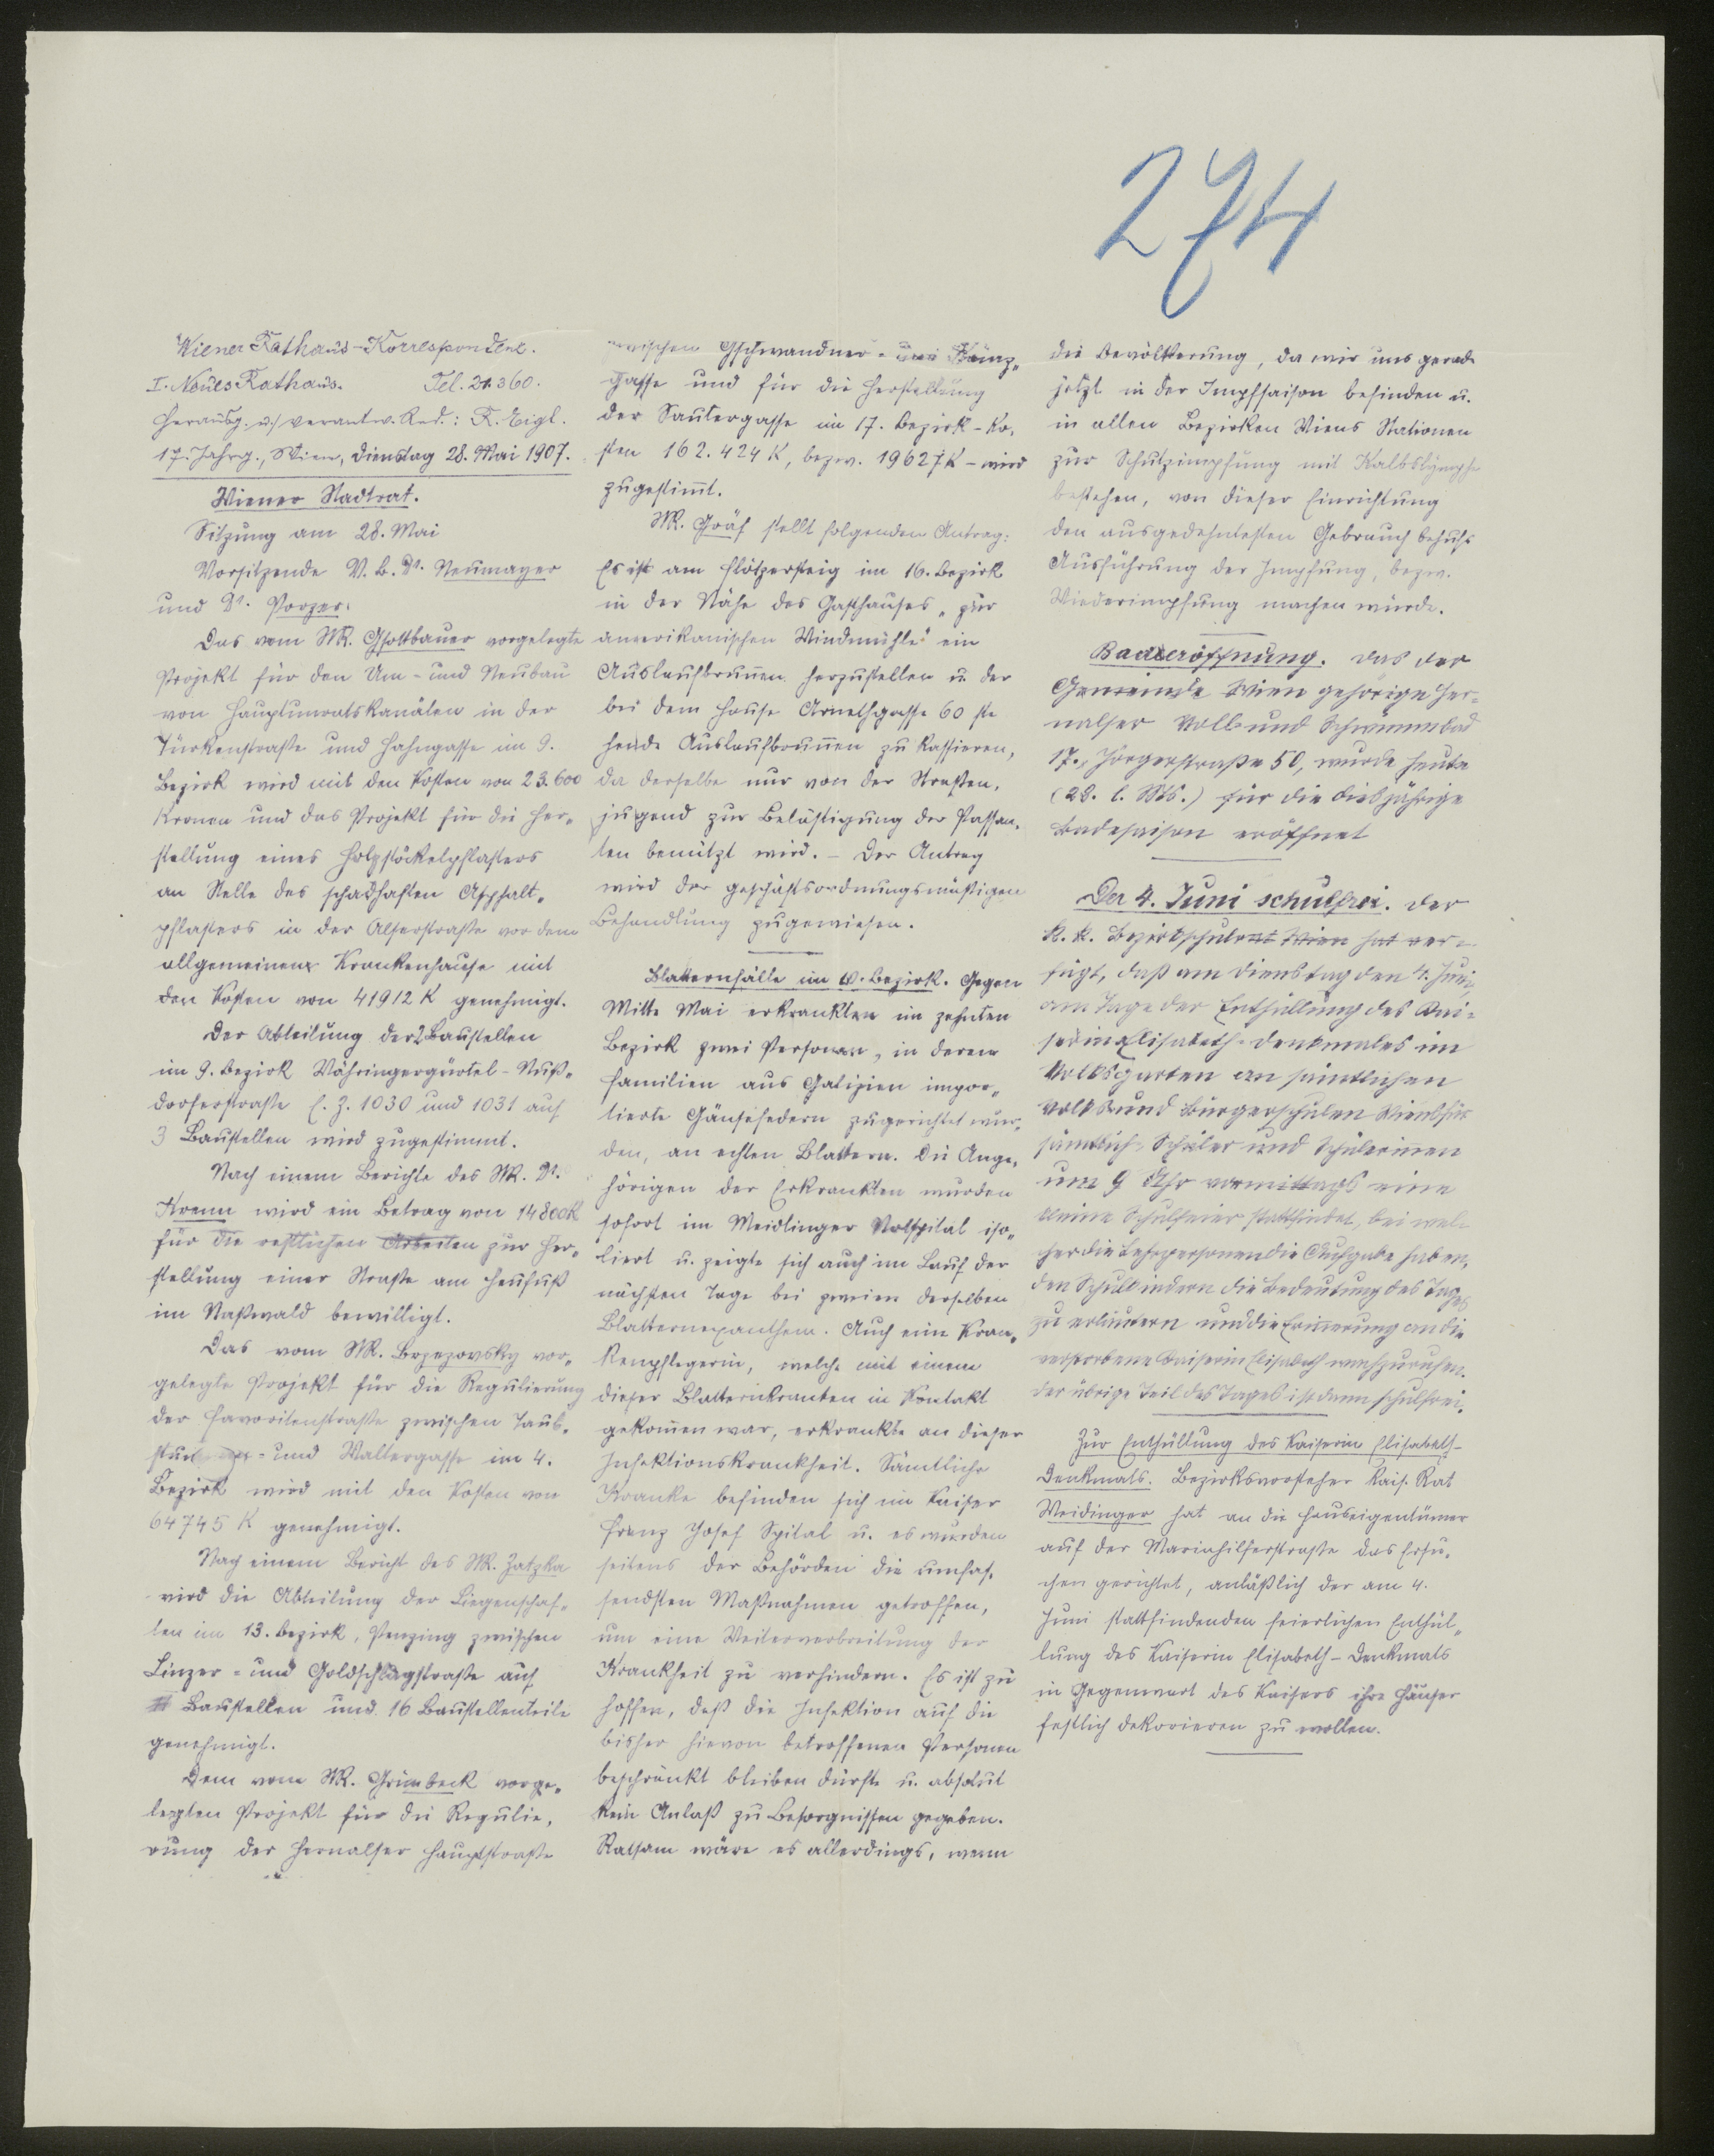 274
Wiener Rathaus-Korrespondenz.
I. Neues Rathaus. Tel. 21.360.
Herausg. u. verantw. Red.: R. Eigl.
17. Jahrg., Wien, Dienstag 28. Mai 1907.
Wiener Stadtrat.
Sitzung am 28. Mai
Vorsitzende V. B. Dr. Neumayer
und Dr. Porzer.
Das vom StR. Gsottbauer vorgelegte
Projekt für den Um- und Neubau
von Hauptunratskanälen in der
Türkenstraße und Hahngasse im 9.
Bezirk wird mit den Kosten von 23.600
Kronen und das Projekt für die Her-
stellung eines Holzstöckelpflasters
an Stelle des schadhaften Asphalt-
pflasters in der Alserstraße vor dem
allgemeinen Krankenhause mit
den Kosten von 41912 K genehmigt.
Der Abteilung der 2 Baustellen
im 9. Bezirk Währingergürtel-Nuß-
dorferstraße E. Z. 1030 und 1031 auf
3 Baustellen wird zugestimmt.
Nach einem Berichte des StR. Dr.
Krenn wird ein Betrag von 14800 K
für die restlichen Arbeiten zur Her-
stellung einer Straße am Heufuß
im Naßwald bewilligt.
Das vom StR. Brzezowsky vor-
gelegte Projekt für die Regulierung
der Favoritenstraße zwischen Taub-
stummen- und Waltergasse im 4.
Bezirk wird mit den Kosten von
64745 K genehmigt.
Nach einem Bericht des StR. Zatzka
wird die Abteilung der Liegenschaf-
ten im 13. Bezirk, Penzing zwischen
Linzer- und Goldschlagstraße auf
Baustellen und 16 Baustellenteile
genehmigt.
Dem vom StR. Grünbeck vorge-
legten Projekt für die Regulie-
rung der Hernalser Hauptstraße
zwischen Gschwandner- und Künz-
gasse und für die Herstellung
der Sautergasse im 17. Bezirk - Ko-
sten 162.424 K, bezw. 19627 K - wird
zugestimmt.
StR. Gräf stellt folgenden Antrag:
Es ist am Flötzersteig im 16. Bezirk
in der Nähe des Gasthauses „zur
amerikanischen Windmühle" ein
Auslaufbrunnen herzustellen u. der
bei dem Hause Arnethgasse 60 ste
hende Auslaufbrunnen zu kassieren,
da derselbe nur von der Straßen-
jugend zur Belästigung der Passan-
ten benützt wird. - Der Antrag
wird der geschäftsordnungsmäßigen
Behandlung zugewiesen.
Blatternfälle im 10. Bezirk. Gegen
Mitte Mai erkrankten im zehnten
Bezirk zwei Personen, in deren
Familien aus Galizien impor-
tierte Gänsefedern zugerichtet wur-
den, an echten Blattern. Die Ange-
hörigen der Erkrankten wurden
sofort im Meidlinger Notspital iso-
liert u. zeigte sich auch im Lauf der
nächsten Tage bei zweien derselben
Blatternexanthem. Auch eine Kran-
kenpflegerin, welche mit einem
dieser Blatternkranken in Kontakt
gekommen war, erkrankte an dieser
Infektionskrankheit. Sämtliche
Kranke befinden sich im Kaiser
Franz Josef Spital u. es wurden
seitens der Behörden die umfas-
sendsten Maßnahmen getroffen,
um eine Weiterverbreitung der
Krankheit zu verhindern. Es ist zu
hoffen, daß die Infektion auf die
bisher hievon betroffenen Personen
beschränkt bleiben dürfte u. absolut
kein Anlaß zu Besorgnissen gegeben.
Ratsam wäre es allerdings, wenn
die Bevölkerung, da wir uns gerade
jetzt in der Impfsaison befinden u.
in allen Bezirken Wiens Stationen
zur Schutzimpfung mit Kalbslymphe
bestehen, von dieser Einrichtung
den ausgedehntesten Gebrauch behufs
Ausführung der Impfung, bezw.
Wiederimpfung machen würde.
Badeeröffnung. Das der
Gemeinde Wien gehörige Her-
nalser Voll- und Schwimmbad
17., Jörgerstraße 50, wurde heute
(28. l. Mts.) für die diesjährige
Badesaison eröffnet
Der 4. Juni schulfrei. Der
k. k. Bezirksschulrat Wien hat ver-
fügt, daß am Dienstag den 4. Juni,
am Tage der Enthüllung des Kai-
serin Elisabeth-Denkmales im
Volksgarten an sämtlichen
Volks- und Bürgerschulen Wiens für
sämtliche Schüler und Schülerinnen
um 9 Uhr vormittags eine
kleine Schulfeier stattfindet, bei wel-
cher die Lehrpersonen die Aufgabe haben,
den Schulkindern die Bedeutung des Tages
zu erläutern und die Erinnerung an die
verstorbene Kaiserin Elisabeth wachzurufen.
Der übrige Teil des Tages ist dann schulfrei.
Zur Enthüllung des Kaiserin Elisabeth-
Denkmals. Bezirksvorsteher kais. Rat
Weidinger hat an die Hauseigentümer
auf der Mariahilferstraße das Ersu-
chen gerichtet, anläßlich der am 4.
Juni stattfindenden feierlichen Enthül-
lung des Kaiserin Elisabeth-Denkmals
in Gegenwart des Kaisers ihre Häuser
festlich dekorieren zu wollen.